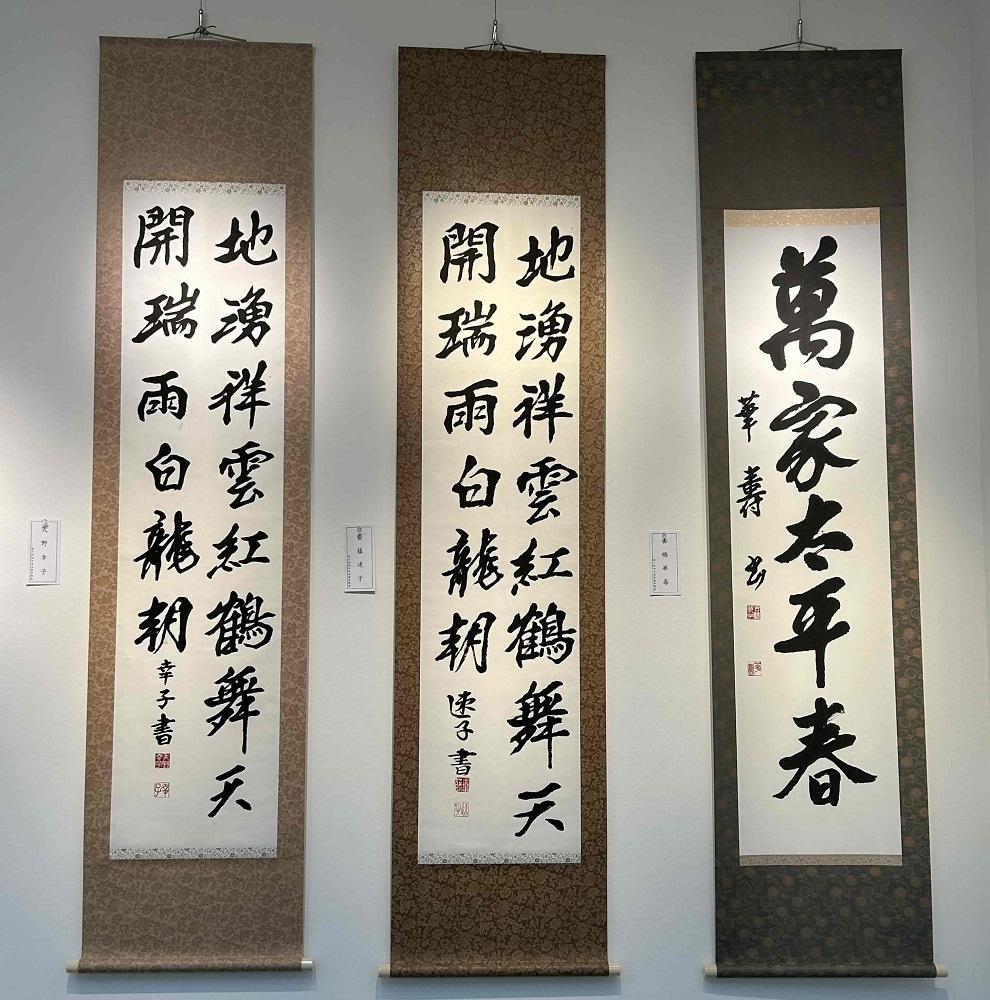 地湧祥雲紅鶴舞天
開瑞雨白龍朝
幸子書
地湧祥雲紅鶴舞天
開瑞雨白龍朝
速子書
萬家太平春
華壽書
野幸子
藤速子
橋華壽